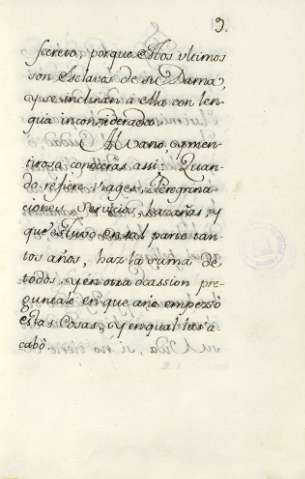 9.
secreto, porque estos vlcimos
son esclavos de su Dama,
y se inclinan a ella con len-
gua inconsiderada.
Al Vano, y men-
tiroso conoceras assi: Quan-
do refiere viages, Peregrina-
ciones, servicios, hazañas, y
que estuvo en tal parte tan-
tos años, haz la suma de
todos, y en otra ocassion pre-
guntale en que año empezó
estas Cosas, y en qual las a
cabó